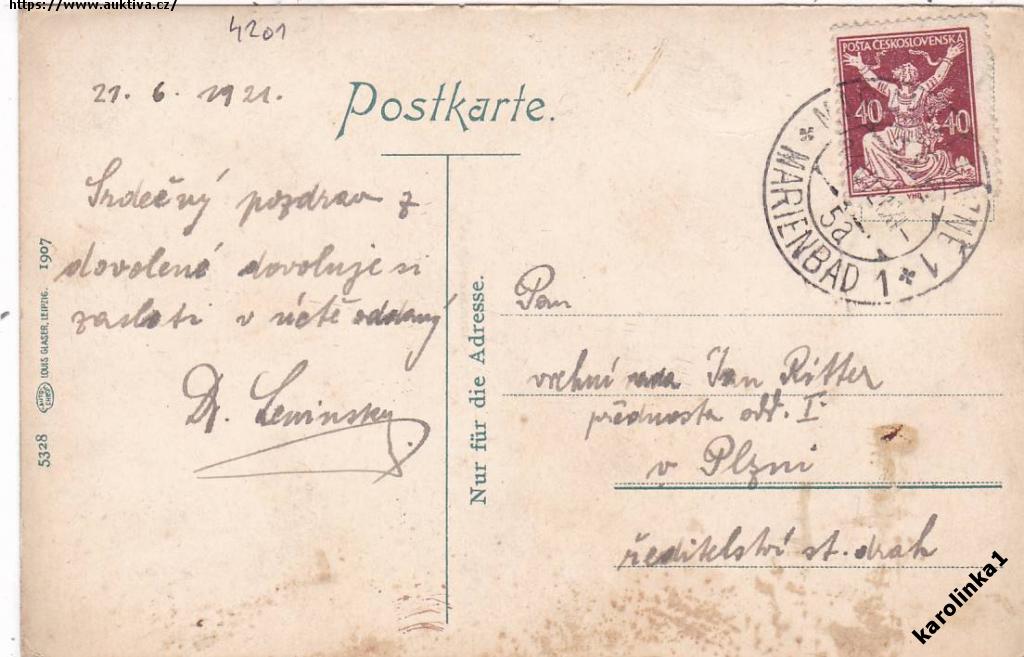 https://www.auktiva.cz/
4201
21. 6. 1921.
Postkarte.
POŠTA ČESKOSLOVENSKA
40 40
MARIENBAD 1 * 1
5a
Srdečný pozdrav z
dovolené dovoluje si
zaslati v úctě oddaný
Dr. Lewinsky.
Nur für die Adresse.
5328 LOUIS GLASER, LEIPZIG. 1907
Pan
vrchní rada Jan Ritter
přednosta odd. I.
v Plzni
ředitelství st. drah
karolinka1